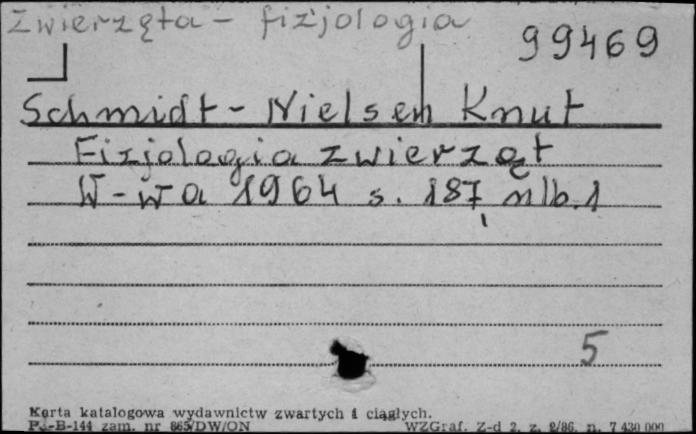 Zwierzęta - fizjologia
99469
Schmidt-Nielsen Knut
Fizjologia zwierząt
W-wa 1964 s. 187, nlb. 1
5
Karta katalogowa wydawnictw zwartych i ciągłych.
Pu-B-144 zam. nr 865/DW/ON WZGraf. Z-d 2. z. 2/86. n. 7 430 000